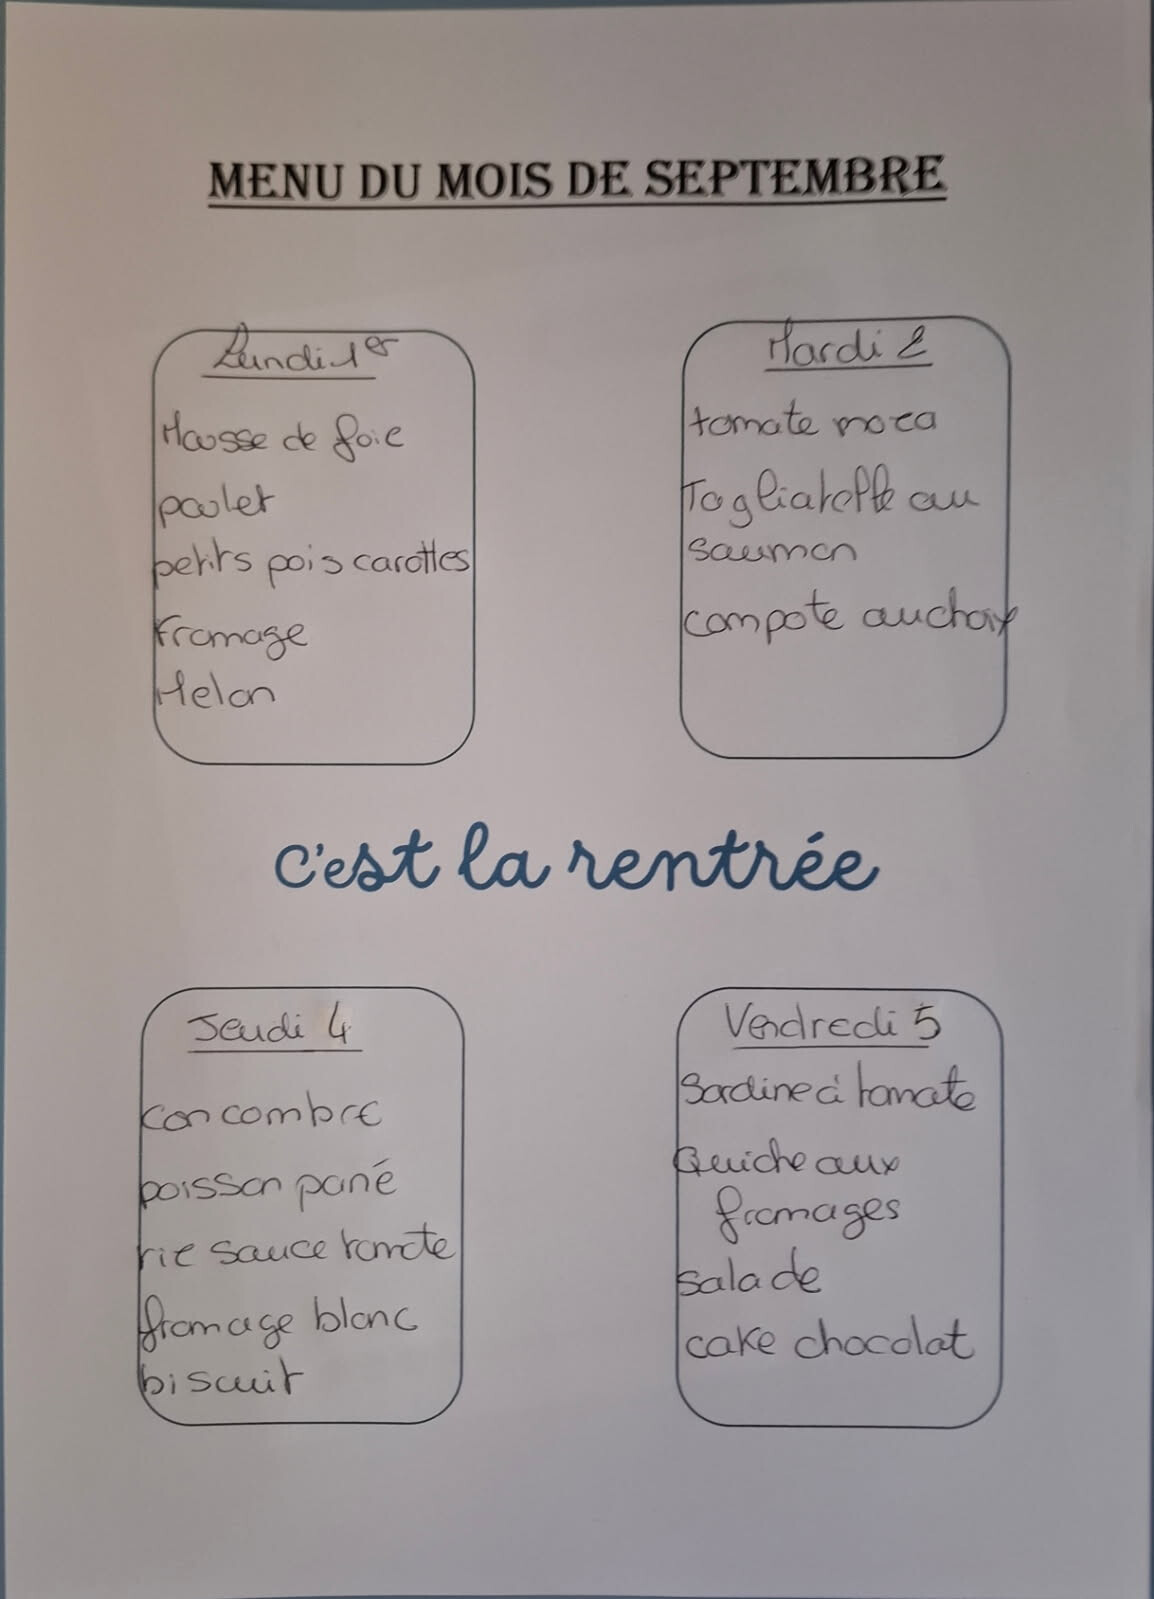 MENU DU MOIS DE SEPTEMBRE
Lundi 1er
Mousse de foie
poulet
petits pois carottes
Fromage
Melon
Mardi 2
tomate moza
Tagliatelle au
saumon
compote au choix
c'est la rentrée
Jeudi 4
concombre
poisson pané
riz sauce tomate
fromage blanc
biscuit
Vendredi 5
Sardine à tomate
Quiche aux
fromages
salade
cake chocolat